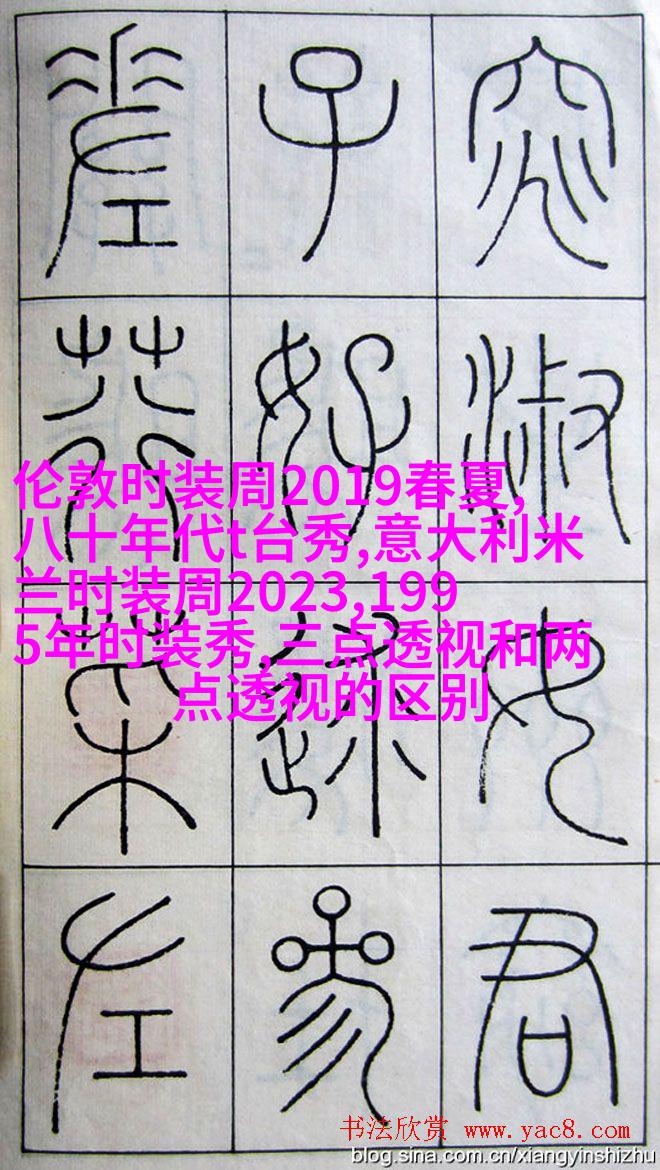 窕淑女君
子好逑參
差荇菜左
伦敦时装周2019春夏,
八十年代t台秀,意大利米
兰时装周2023,199
5年时装秀,三点透视和两
点透视的区别
书法欣赏 www.yac8.com
blog.sina.com.cn/xiangyinshizhu